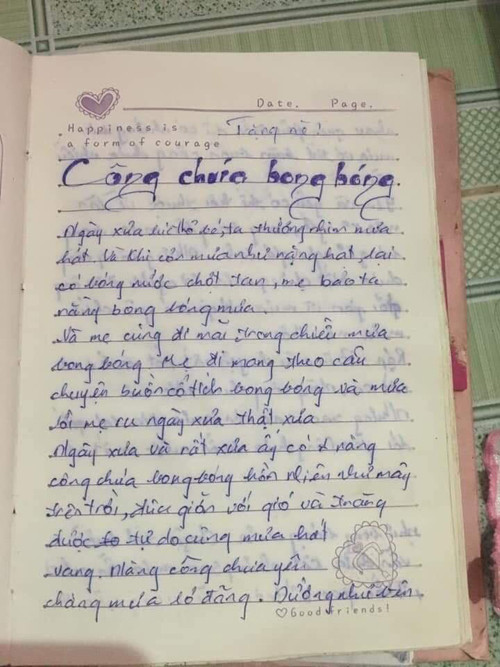 Date. Page.
Happiness is
a form of courage
Tặng mẹ!
Công chúa bong bóng.
Ngày xưa lúc nhỏ bé, ta thường nhìn mưa
hát. Và khi cơn mưa như nặng hạt, lại
có bóng nước chợt tan, mẹ bảo ta
rằng bong bóng mưa.
Và mẹ cũng đi mãi, trong chiều mưa
bong bóng. Mẹ đi mang theo câu
chuyện buồn cổ tích bong bóng và mưa
lời mẹ ru ngày xưa thật xưa
Ngày xưa và rất xưa ấy có 1 nàng
công chúa bong bóng hồn nhiên như mây
trên trời, đùa giỡn với gió và trăng
được tự do cùng mưa hát
vang. Nàng công chúa yêu
chàng mưa lơ đãng. Dường như vẫn
Good friends!